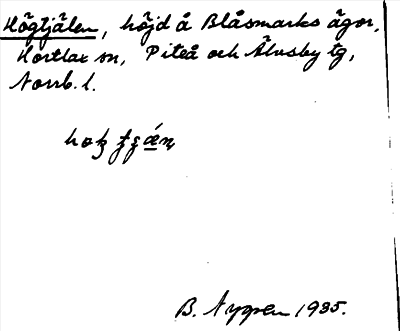 Högtjälen, höjd å Blåsmarks ägor,
Hortlax sn, Piteå och Älvsby tg,
Norrb. l.
B. Nygren 1935.